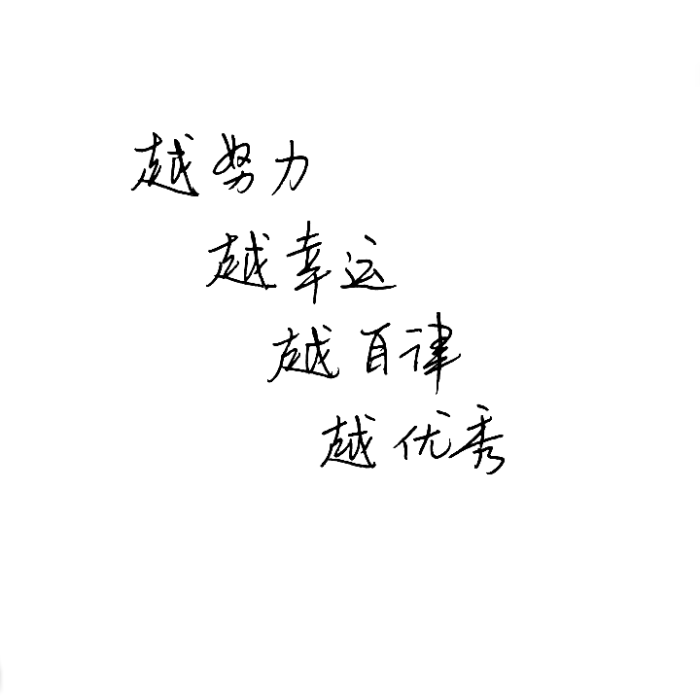 越努力
越幸运
越自律
越优秀